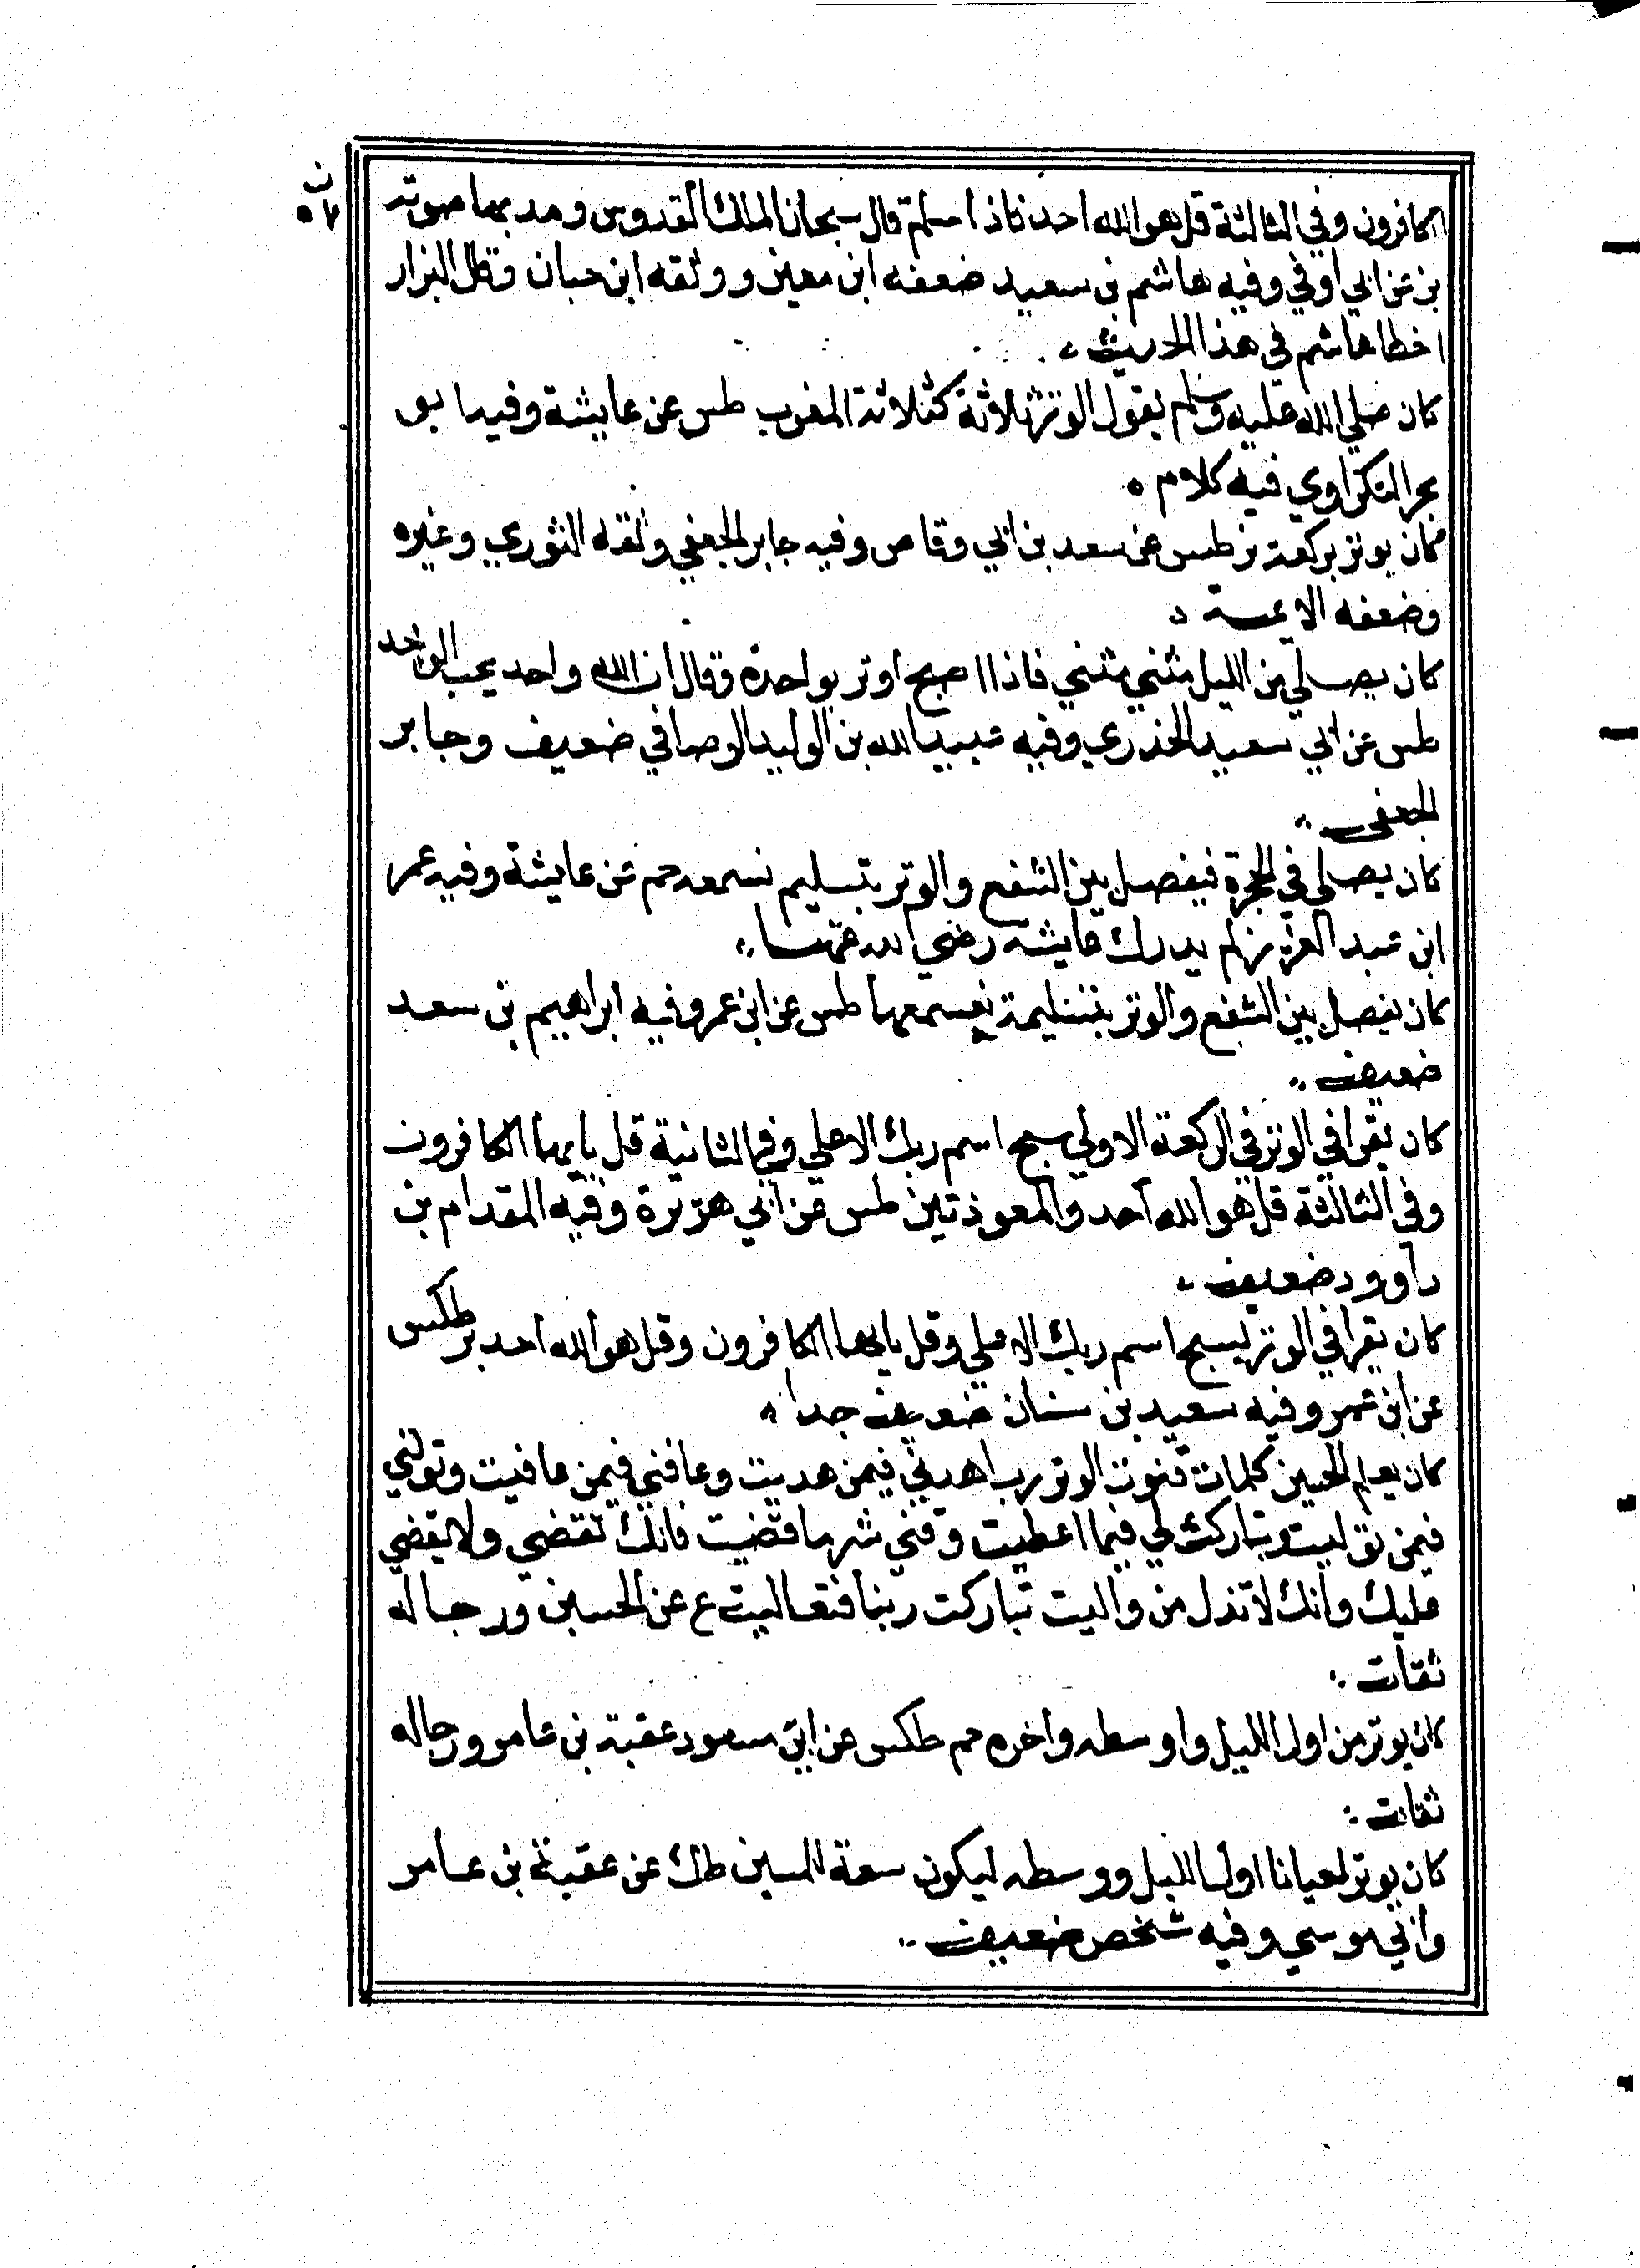 الكافرون وفي الثالثة قل هو الله احد فاذا سلم قال سبحان الملك القدوس ومد بها صوته
بز عن ابي اوفي وفيه هاشم بن سعيد ضعفه ابن معين ووثقه ابن حبان وقال البزار
اخطا هاشم في هذا الحديث
كان صلي الله عليه وسلم يقول الوتر ثلاثة كثلاثة المغرب طس عن عايشة وفيه ابو
بحر البكراوي فيه كلام
كان يوتر بركعة بز طس عن سعد بن ابي وقاص وفيه جابر الجعفي وثقه الثوري وغيره
وضعفه الايمة
كان يصلي من الليل مثني مثني فاذا اصبح اوتر بواحدة وقال ان الله واحد يحب الواحد
طس عن ابي سعيد الخذري وفيه عبيد الله بن الوليد الوصافي ضعيف وجابر
الجعفي
كان يصلي في الحجرة فيفصل بين الشفع والوتر بتسليم نسمعه حم عن عايشة وفيه عمر
ابن عبد العزيز لم يدرك عايشة رضي الله عنها
كان يفصل بين الشفع والوتر بتسليمة يسمعها طس عن ابن عمر وفيه ابراهيم بن سعد
ضعيف
كان يقرا في الوتر في الركعة الاولي سبح اسم ربك الاعلي وفي الثانية قل يايها الكافرون
وفي الثالثة قل هو الله احد والمعوذتين طس عن ابي هريرة وفيه المقدام بن
داوود ضعيف
كان يقرا في الوتر بسبح اسم ربك الاعلي وقل يايها الكافرون وقل هو الله احد بز طكس
عن ابن عمر وفيه سعيد بن سنان ضعيف جدا
كان يعلم الحسين كلمات قنوت الوتر رب اهدني فيمن هديت وعافني فيمن عافيت وتولني
فيمن توليت وتبارك لي فيما اعطيت وقني شر ما قضيت فانك تقضي ولا يقضي
عليك وانك لا تذل من واليت تباركت ربنا فتعاليت ع عن الحسين ورجاله
ثقات
كان يوتر من اول الليل واوسطه واخره حم طكس عن ابي مسعود عقبة بن عامر ورجاله
ثقات
كان يوتر احيانا اول الليل ووسطه ليكون سعة للمسلمين طك عن عقبة بن عامر
وابي موسي وفيه شخص ضعيف